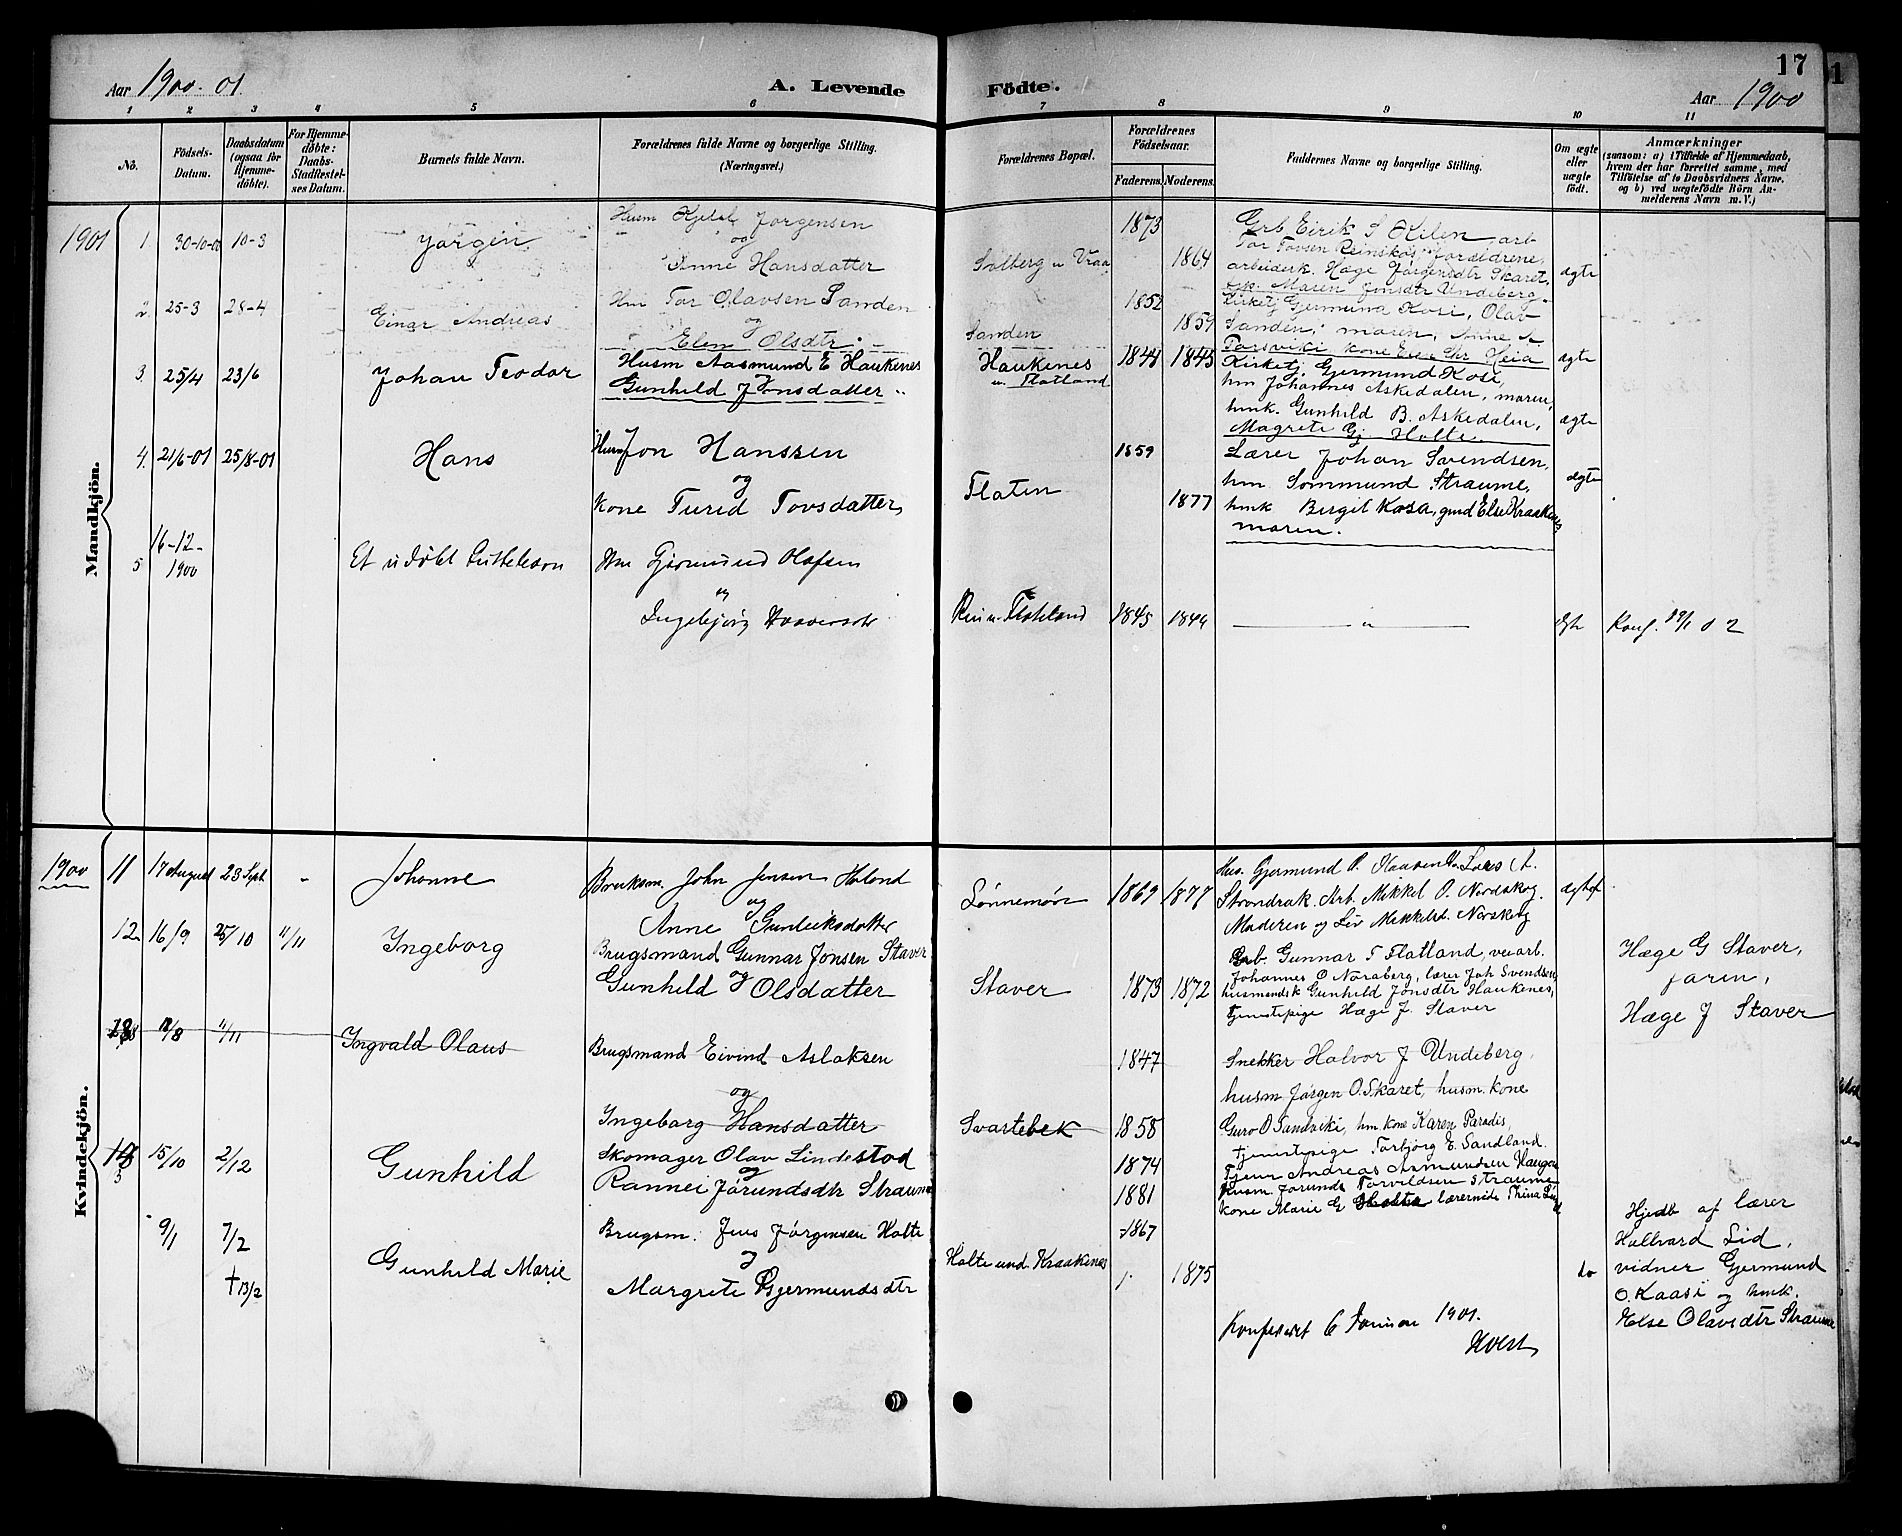 Aar 1900-01.
A. Levende
Födte.
17
Aar 1900
1 2 3 4 5 6 7 8 9 10 11
No.
Födsels-
Datum.
Daabsdatum
(ogsaa for
Hjemme-
döbte).
For Hjemme-
döbte:
Daabs-
Stadfæstel-
ses Datum.
Barnets fulde Navn.
Forældrenes fulde Navne og borgerlige Stilling.
(Næringsvei.)
Forældrenes Bopæl.
Forældrenes
Födselsaar.
Faderens. Moderens.
Faddernes Navne og borgerlige Stilling.
Om ægte
eller
uægte
födt.
Anmærkninger
(saasom: a) i Tilfælde af Hjemmedaab,
hvem der har forrettet samme, med
Tilföielse af to Daabsvidners Navne,
og b) ved uægtefödte Börn An-
melderens Navn m. V.)
Mandkjön.
1901
1. 30-10-00 10-3 Jørgen
Husm Kjetil Jørgensen
og
Anne Hansdatter
Solberg u Vraa
1873
1864
Grb Eirik S Kilen, arb
Tor Tovsen Reinskos, forældrene,
arbeiderk. Hæge Jørgensdtr Skaret,
Maren Jonsdtr Undeberg
ægte
2 25-3 28-4 Einar Andreas
Hm Tor Olavsen Sanden
og
Elen Olsdtr.
Sanden
1852
1859
Kirketj Gjermund Kosi, Olav
Sanden, maren, Anne
Torsviki kone Heia
ægte
3. 25/4 23/6 Johan Teodor
Husm Aasmund E Haukenes
Gunhild Jonsdatter
Haukenes
u. Flatland
1844 1845
Kirketj. Gjermund Kosi,
hm Johannes Askedalen, maren,
hmk. Gunhild B. Askedalen,
Magrete Gj Holte.
ægte
4. 21/6-01 25/8-01 Hans
Husm Jon Hanssen
og
kone Turid Tovsdatter
Flaten
1859
1877
Lærer Johan Svendsen,
hm Sommund Straume,
hmk Birgit Kosa, gmd Else Kraakenes
maren.
ægte
5 16-12-
1900
Et udøbt Guttebarn
Hm Gjermund Olafsen
og
Ingebjørg
u. Flateland
1845 1849
"
ægte
Konf. 19/1 02
Kvindekjön.
1900
11 17 August 23 Sept - Johanne
Bruksm. John Jensen Holand
og
Anne Gunleiksdatter
Lønnemøre
1869 1877
Hus. Gjermund O. Lars A.
Strondrak. Arb. Mikkel O. Nordskog.
Moderen og Liv Mikkelsd. Norskog
ægtef
12. 16/9 25/10 11/11 Ingeborg
Brugsmand Gunnar Jonsen Staver
og
Gunhild Olsdatter
Staver
1873 1872
Grb. Gunnar T Flatland, veiarb.
Johannes O Noraberg, lærer Joh Svendsen,
husmandsk Gunhild Jonsdtr Haukenes,
tjenstepige Hæge J. Staver
Hæge G Staver,
faren,
Hæge J Staver
13 /8 4/11 Ingvald Olaus
Brugsmand Eivind Aslaksen
og
Ingeborg Hansdatter
Svartebek
1847
1858
Snekker Halvor J Undeberg,
husm Jørgen O. Skaret, husm. kone
Guro O Sandviki, hm. kone Karen Paradis,
tjenstepige Torbjørg E. Sandland.
13 15/10 2/12 Gunhild
Skomager Olav Lindestad
og
Rannei Jørundsdtr Straume
1874
1881
Tjener Andreas Asmundsen Haugen
Husm Jørund Torvildsen Straume
kone Marie G Holte lærerinde Thina Lid
9/1 7/2
†13/2
Gunhild Marie
Brugsm. Jens Jørgensen Holte
og
Margrete Gjermundsdtr
Holte und. Kraakenes
1867
1875
do
Hjedb af lærer
Hallvard Lid,
vidner Gjermund
O. Kaasi og hmk.
Else Olavsdtr Straume
Konfereret 6 Januar 1901.